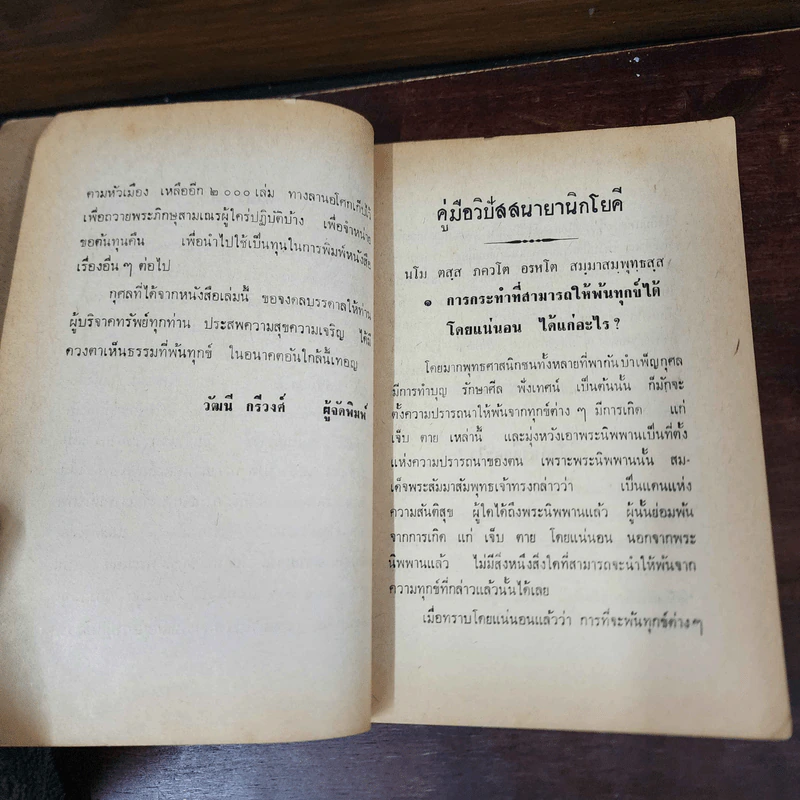 ตามหัวเมือง เหลืออีก ๒๐๐๐ เล่ม ทางลานอโศกเก็บไว้
เพื่อถวายพระภิกษุสามเณรผู้ใคร่ปฏิบัติบ้าง เพื่อจำหน่าย
ขอต้นทุนคืน เพื่อนำไปใช้เป็นทุนในการพิมพ์หนังสือ
เรื่องอื่น ๆ ต่อไป
กุศลที่ได้จากหนังสือเล่มนี้ ขอจงดลบรรดาลให้ท่าน
ผู้บริจาคทรัพย์ทุกท่าน ประสพความสุขความเจริญ ได้มี
ดวงตาเห็นธรรมที่พ้นทุกข์ ในอนาคตอันใกล้นี้เทอญ
วัฒนี กรีวงศ์ ผู้จัดพิมพ์
คู่มือวิปัสสนายานิกโยคี
นโม ตสฺส ภควโต อรหโต สมฺมาสมฺพุทฺธสฺส
๑ การกระทำที่สามารถให้พ้นทุกข์ได้
โดยแน่นอน ได้แก่อะไร ?
โดยมากพุทธศาสนิกชนทั้งหลายที่พากันบำเพ็ญกุศล
มีการทำบุญ รักษาศีล ฟังเทศน์ เป็นต้นนั้น ก็มักจะ
ตั้งความปรารถนาให้พ้นจากทุกข์ต่าง ๆ มีการเกิด แก่
เจ็บ ตาย เหล่านี้ และมุ่งหวังเอาพระนิพพานเป็นที่ตั้ง
แห่งความปรารถนาของตน เพราะพระนิพพานนั้น สม-
เด็จพระสัมมาสัมพุทธเจ้าทรงกล่าวว่า เป็นแดนแห่ง
ความสันติสุข ผู้ใดได้ถึงพระนิพพานแล้ว ผู้นั้นย่อมพ้น
จากการเกิด แก่ เจ็บ ตาย โดยแน่นอน นอกจากพระ
นิพพานแล้ว ไม่มีสิ่งหนึ่งสิ่งใดที่สามารถจะนำให้พ้นจาก
ความทุกข์ที่กล่าวแล้วนั้นได้เลย
เมื่อทราบโดยแน่นอนแล้วว่า การที่จะพ้นทุกข์ต่าง ๆ